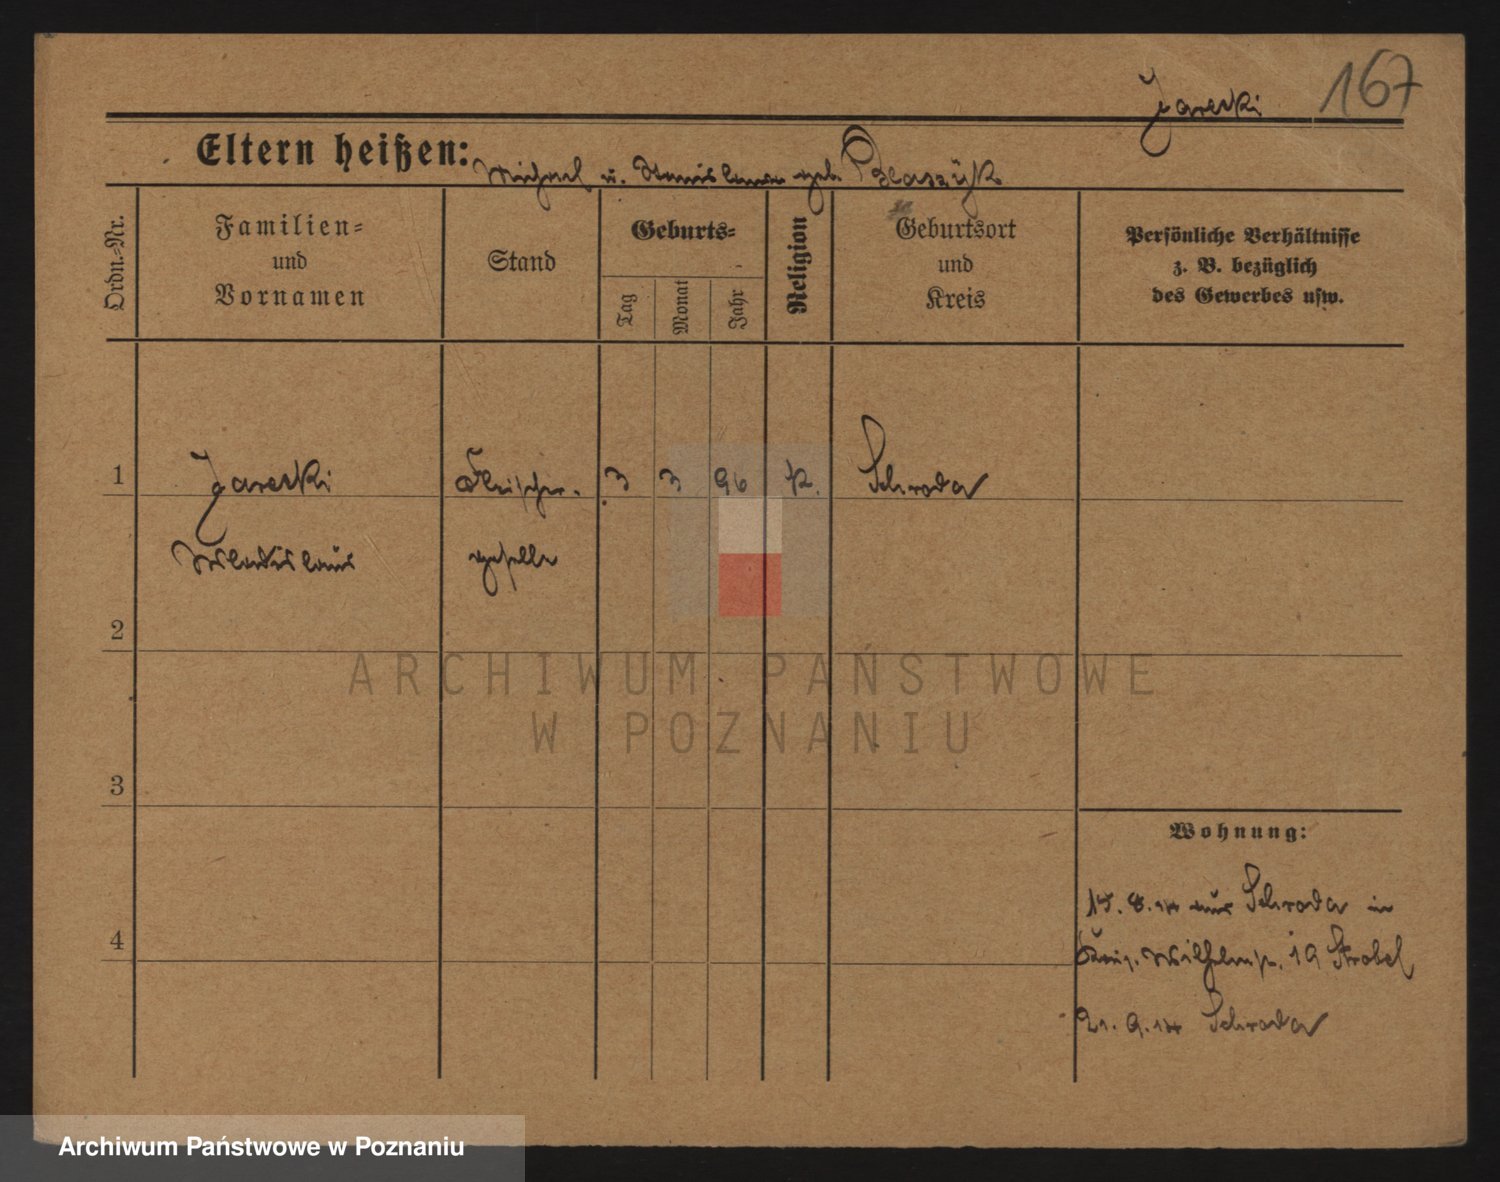 167
Jarecki
Eltern heißen: Michael u. Stanislawa geb. Blaszÿk
Ordn.=Nr.
Familien=
und
Vornamen
Stand
Geburts=
Tag
Monat
Jahr
Religion
Geburtsort
und
Kreis
Persönliche Verhältnisse
z. B. bezüglich
des Gewerbes usw.
1 Jarecki Fleischer- 3 3 96 K. Schroda
Wladislaus geselle
2
ARCHIWUM PAŃSTWOWE
W POZNANIU
3
Wohnung:
15.8.14 aus Schroda in
4
Wilhelmstr. 19 Strobel
21.9.14 Schroda
Archiwum Państwowe w Poznaniu